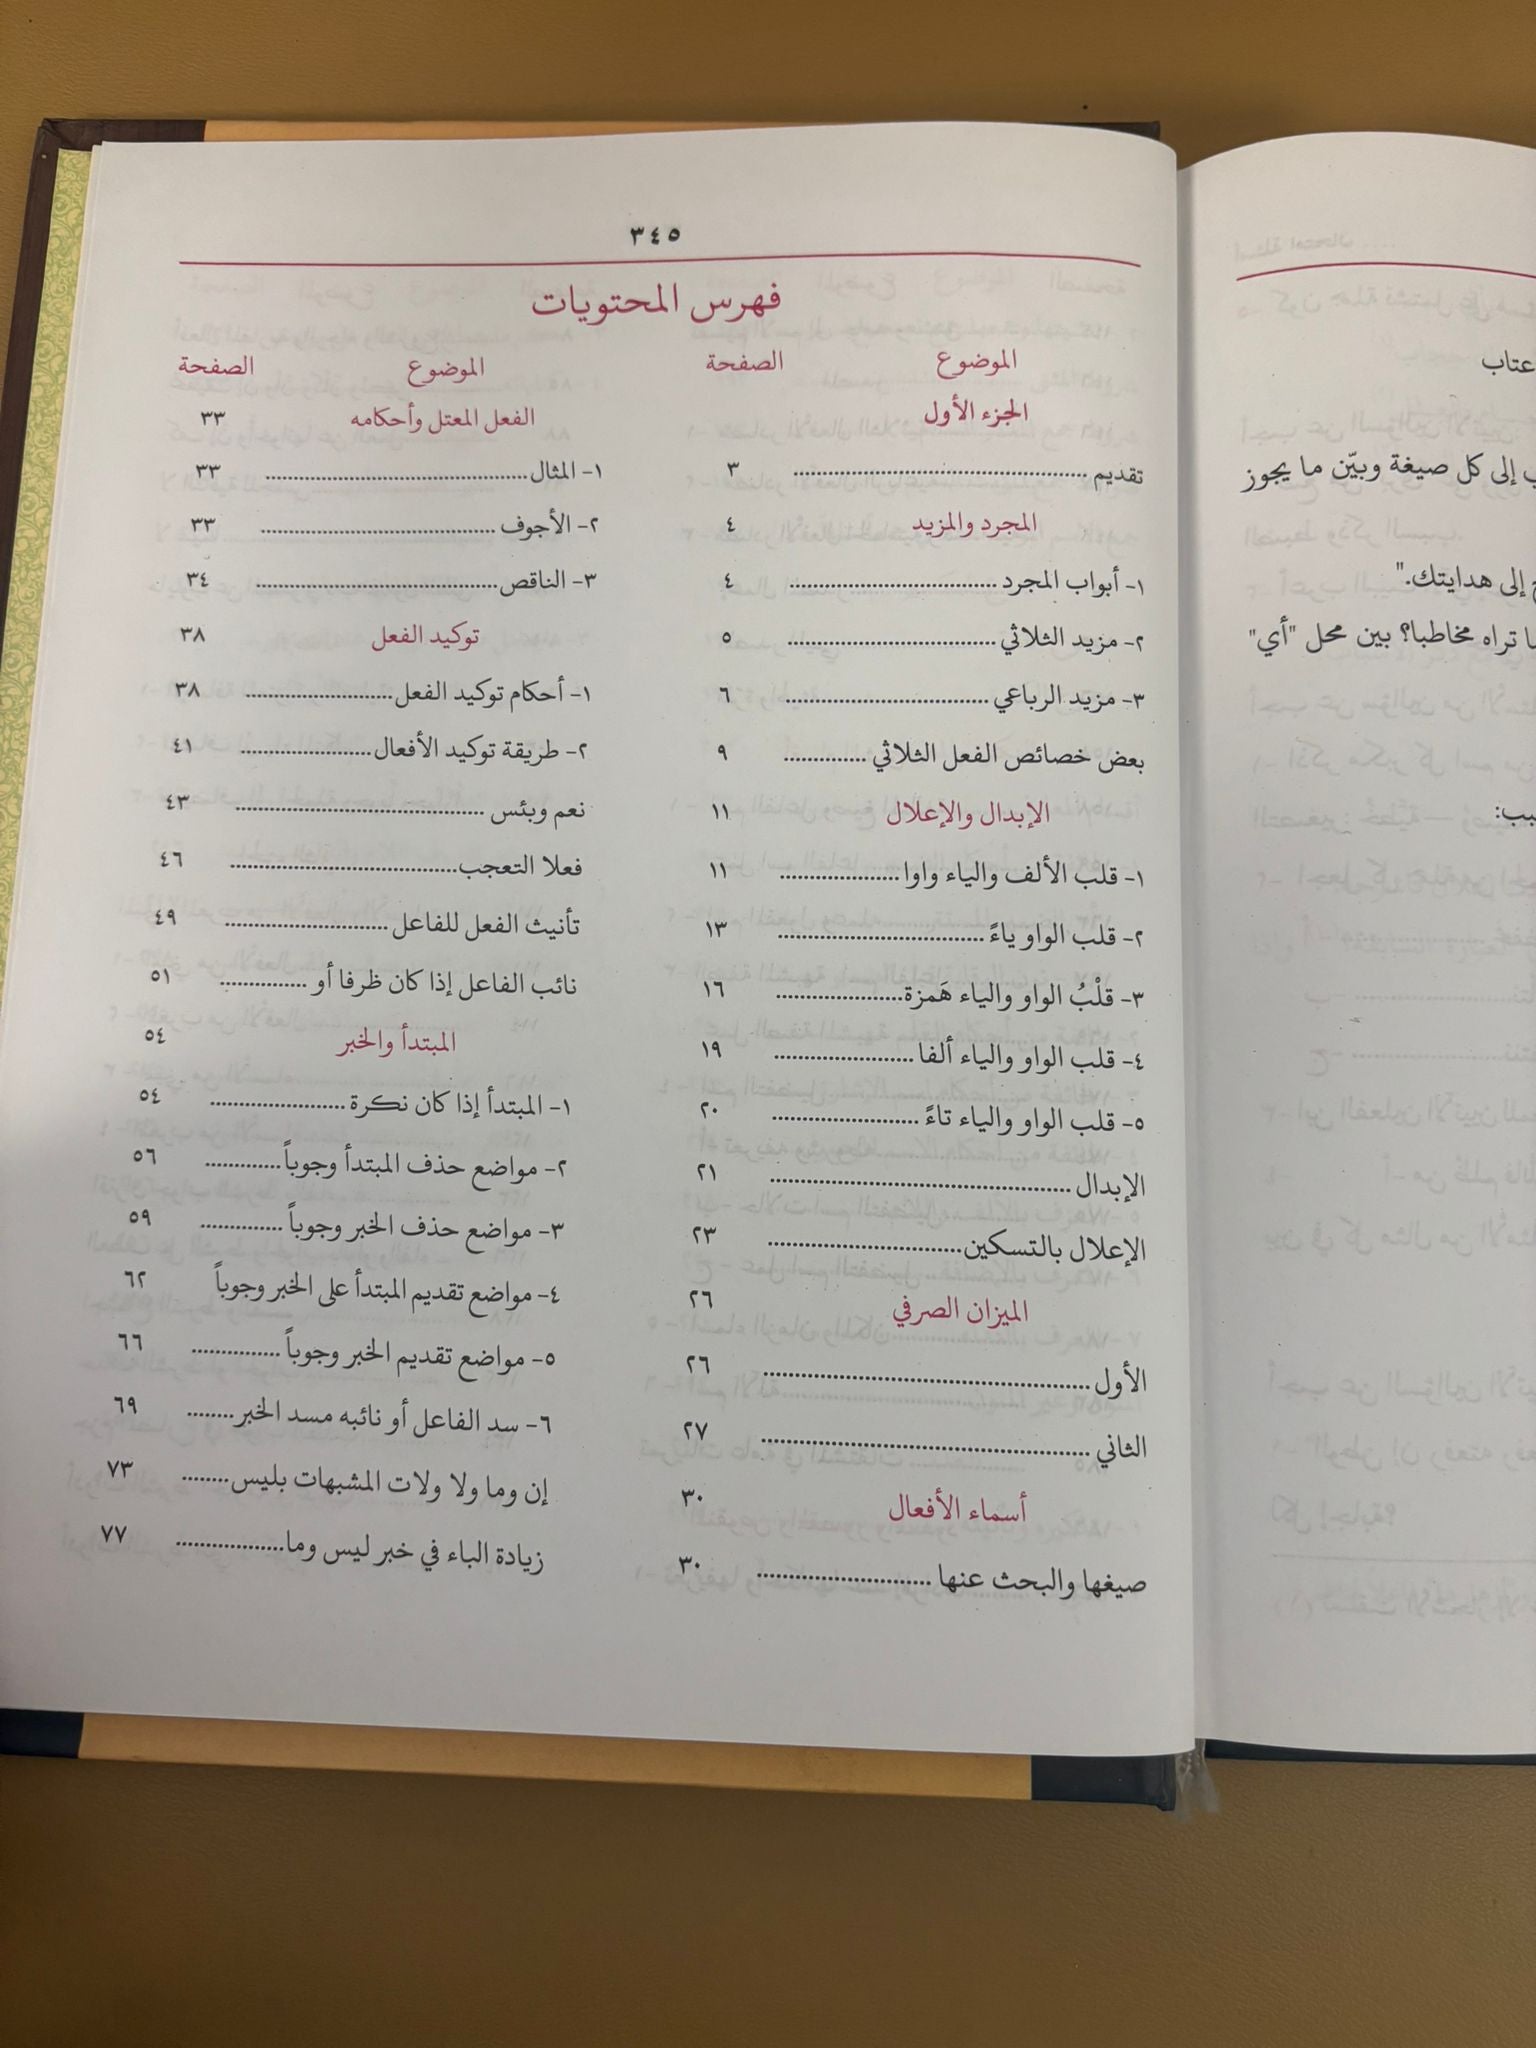 ٣٤٥
فهرس المحتويات
الموضوع الصفحة
الجزء الأول
تقديم ........ ٣
المجرد والمزيد ٤
١- أبواب المجرد ........ ٤
٢- مزيد الثلاثي ........ ٥
٣- مزيد الرباعي ........ ٦
بعض خصائص الفعل الثلاثي ........ ٩
الإبدال والإعلال ١١
١- قلب الألف والياء واوا ........ ١١
٢- قلب الواو ياءً ........ ١٣
٣- قلْبُ الواو والياء هَمزة ........ ١٦
٤- قلب الواو والياء ألفا ........ ١٩
٥- قلب الواو والياء تاءً ........ ٢٠
الإبدال ........ ٢١
الإعلال بالتسكين ........ ٢٣
الميزان الصرفي ٢٦
الأول ........ ٢٦
الثاني ........ ٢٧
أسماء الأفعال ٣٠
صيغها والبحث عنها ........ ٣٠
الموضوع الصفحة
الفعل المعتل وأحكامه ٣٣
١- المثال ........ ٣٣
٢- الأجوف ........ ٣٣
٣- الناقص ........ ٣٤
توكيد الفعل ٣٨
١- أحكام توكيد الفعل ........ ٣٨
٢- طريقة توكيد الأفعال ........ ٤١
نعم وبئس ........ ٤٣
فعلا التعجب ........ ٤٦
تأنيث الفعل للفاعل ........ ٤٩
نائب الفاعل إذا كان ظرفا أو ........ ٥١
المبتدأ والخبر ٥٤
١- المبتدأ إذا كان نكرة ........ ٥٤
٢- مواضع حذف المبتدأ وجوباً ........ ٥٦
٣- مواضع حذف الخبر وجوباً ........ ٥٩
٤- مواضع تقديم المبتدأ على الخبر وجوباً ٦٢
٥- مواضع تقديم الخبر وجوباً ........ ٦٦
٦- سد الفاعل أو نائبه مسد الخبر ........ ٦٩
إن وما ولا ولات المشبهات بليس ........ ٧٣
زيادة الباء في خبر ليس وما ........ ٧٧
عتاب
إلى كل صيغة وبيّن ما يجوز
إلى هدايتك."
تراه مخاطبا؟ بين محل "أي"